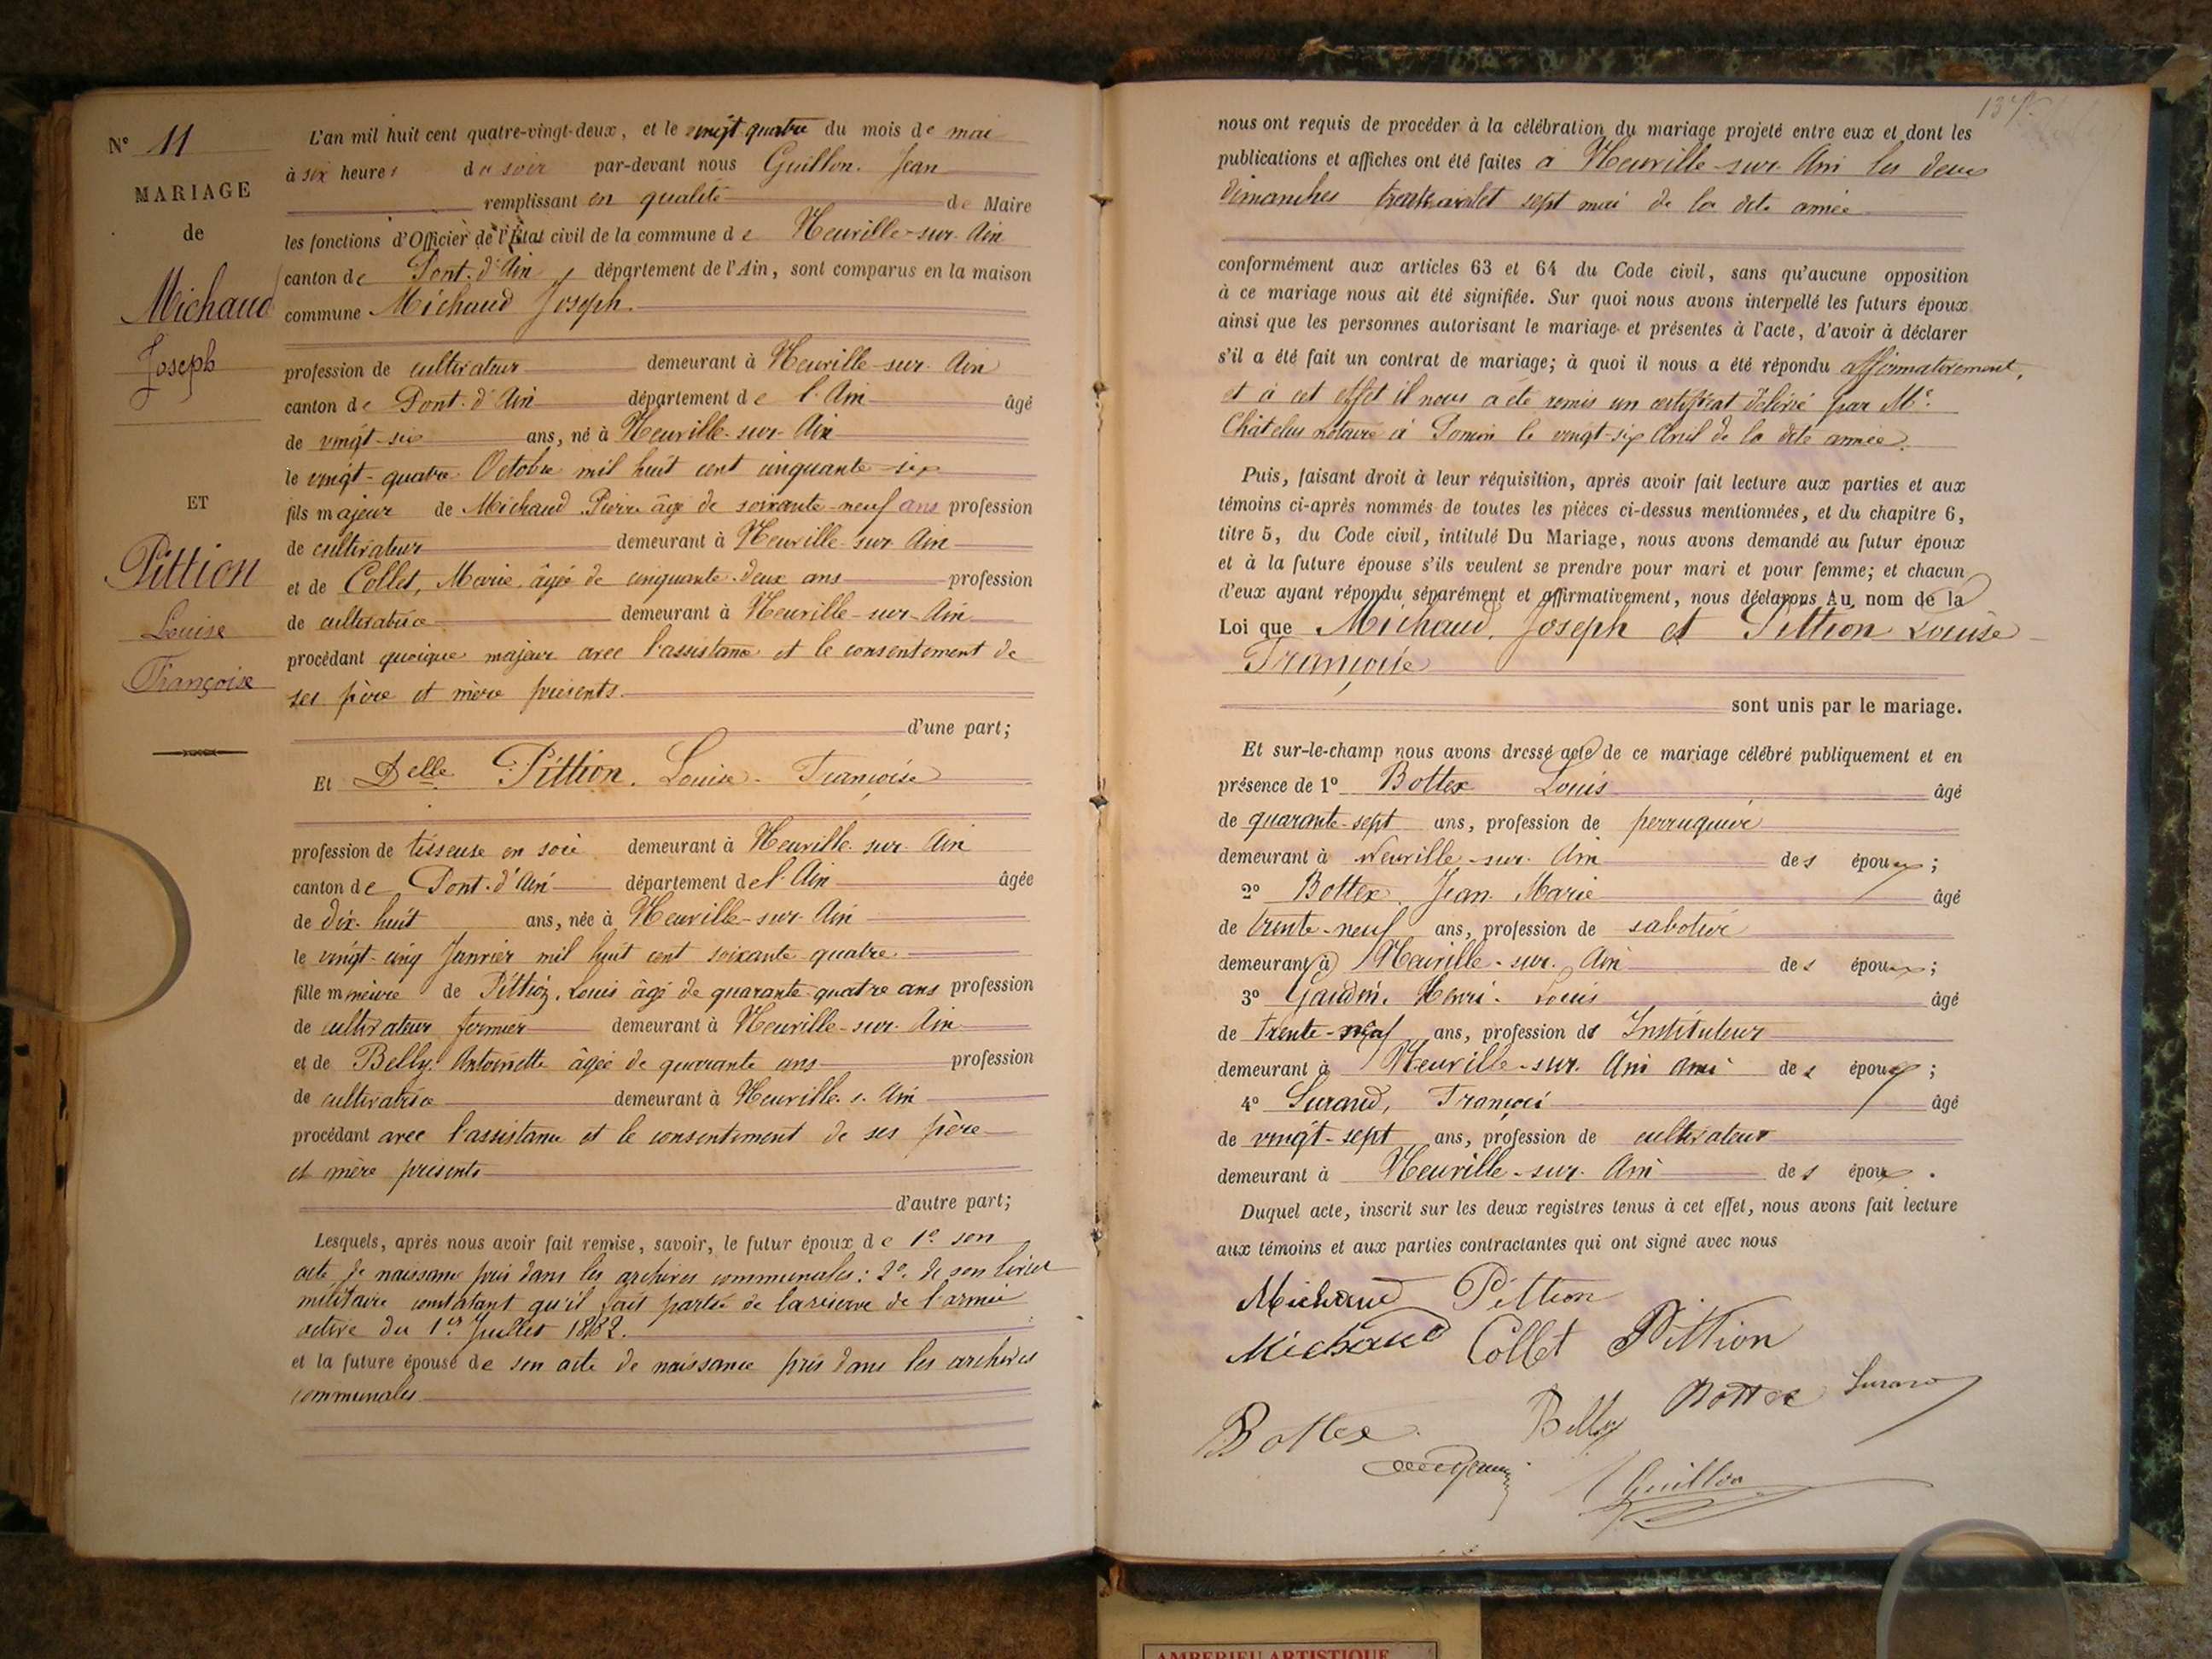 N° 11
MARIAGE
de
Michaud
Joseph
ET
Pittion
Louise
Françoise
L'an mil huit cent quatre-vingt-deux, et le vingt quatre du mois de mai
à six heures du soir par-devant nous Guillon. Jean
remplissant en qualité de Maire
les fonctions d'Officier de l'État civil de la commune de Neuville-sur-Ain
canton de Pont-d'Ain, département de l'Ain, sont comparus en la maison
commune Michaud Joseph.
profession de cultivateur demeurant à Neuville-sur-Ain
canton de Pont-d'Ain département de l'Ain âgé
de vingt-six ans, né à Neuville-sur-Ain
le vingt-quatre Octobre mil huit cent cinquante-six
fils majeur de Michaud Pierre âgé de soixante-neuf ans profession
de cultivateur demeurant à Neuville-sur-Ain
et de Collet, Marie âgée de cinquante-deux ans profession
de cultivatrice demeurant à Neuville-sur-Ain
procédant quoique majeur avec l'assistance et le consentement de
ses père et mère présents.
d'une part;
Et Delle Pittion. Louise-Françoise
profession de tisseuse en soie demeurant à Neuville-sur-Ain
canton de Pont-d'Ain département de l'Ain âgée
de dix-huit ans, née à Neuville-sur-Ain
le vingt-cinq Janvier mil huit cent soixante-quatre.
fille mineure de Pittion, Louis âgé de quarante-quatre ans profession
de cultivateur fermier demeurant à Neuville-sur-Ain
et de Belly. Antoinette âgée de quarante ans profession
de cultivatrice demeurant à Neuville-s-Ain
procédant avec l'assistance et le consentement de ses père
et mère présents
d'autre part;
Lesquels, après nous avoir fait remise, savoir, le futur époux de 1° son
acte de naissance pris dans les archives communales: 2° de son livret
militaire constatant qu'il fait partie de la réserve de l'armée
active du 1er Juillet 1882.
et la future épouse de son acte de naissance pris dans les archives
communales
137
nous ont requis de procéder à la célébration du mariage projeté entre eux et dont les
publications et affiches ont été faites à Neuville-sur-Ain les deux
dimanches trente avril et sept mai de la dite année
conformément aux articles 63 et 64 du Code civil, sans qu'aucune opposition
à ce mariage nous ait été signifiée. Sur quoi nous avons interpellé les futurs époux
ainsi que les personnes autorisant le mariage et présentes à l'acte, d'avoir à déclarer
s'il a été fait un contrat de mariage; à quoi il nous a été répondu affirmativement,
et à cet effet il nous a été remis un certificat délivré par Me.
Châtelus notaire à Poncin le vingt-six Avril de la dite année.
Puis, faisant droit à leur réquisition, après avoir fait lecture aux parties et aux
témoins ci-après nommés de toutes les pièces ci-dessus mentionnées, et du chapitre 6,
titre 5, du Code civil, intitulé Du Mariage, nous avons demandé au futur époux
et à la future épouse s'ils veulent se prendre pour mari et pour femme; et chacun
d'eux ayant répondu séparément et affirmativement, nous déclarons Au nom de la
Loi que Michaud, Joseph et Pittion Louise
Françoise
sont unis par le mariage.
Et sur-le-champ nous avons dressé acte de ce mariage célébré publiquement et en
présence de 1° Bottex Louis âgé
de quarante-sept ans, profession de perruquier
demeurant à Neuville-sur-Ain des époux;
2° Bottex, Jean-Marie âgé
de trente-neuf ans, profession de sabotier
demeurant à Neuville-sur-Ain des époux;
3° Gaudin. Henri-Louis âgé
de trente-neuf ans, profession de Instituteur
demeurant à Neuville-sur-Ain ami des époux;
4° Surand, François âgé
de vingt-sept ans, profession de cultivateur
demeurant à Neuville-sur-Ain des époux.
Duquel acte, inscrit sur les deux registres tenus à cet effet, nous avons fait lecture
aux témoins et aux parties contractantes qui ont signé avec nous
Michaud Pittion
Michaud Collet Pittion
Bottex Belly Bottex Surand
Guillon
AMBERIEU ARTISTIQUE